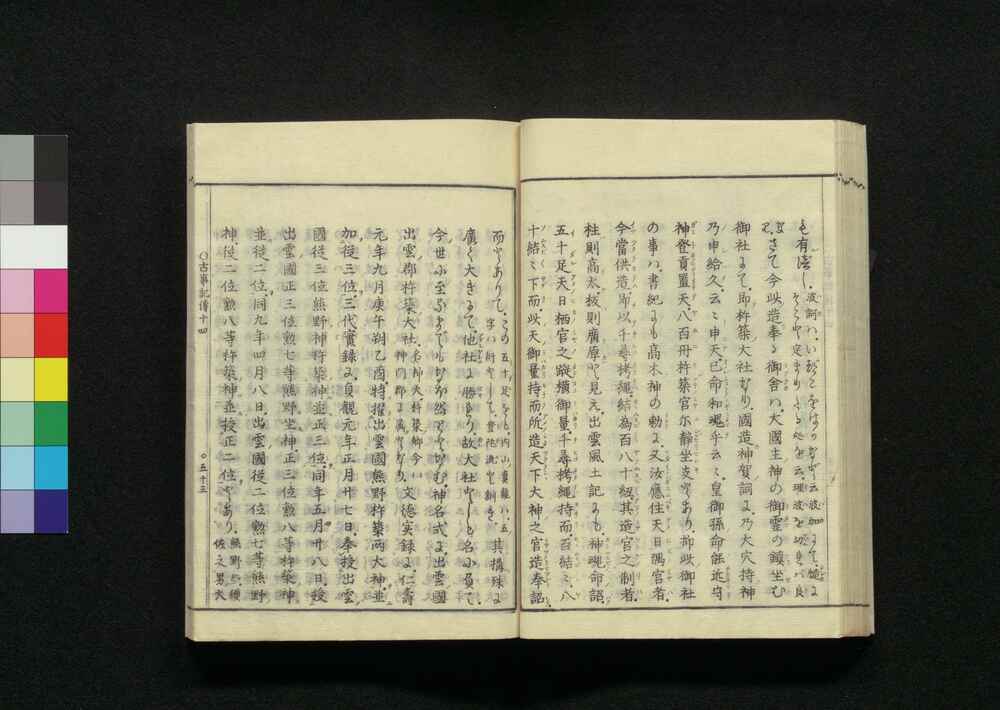 さて今此造奉る御舍ハ、大國主神の御霊の鎭坐む
御社にて、即杵築大社なり、國造神賀詞に、乃大穴持神
乃申給久、云々、申天、己命和魂乎云々、皇御孫命能近守
神登貢置天、八百丹杵築宮尓静坐支とあり、抑此御社
の事ハ、書紀にも高木神の勅に、又汝應住天日隅宮者、
今當供造、即以千尋栲繩、結為百八十紐、其造宮之制者、
柱則高太、板則廣厚と見え、出雲風土記にも、神魂命詔、
五十足天日栖宮之縱横御量、千尋栲繩持而、百結々、八
十結々下而、此天御量持而、所造天下大神之宮造奉詔
而とありて、其構殊に
廣く大きにて、他社に勝れり、故大社としも名に負て、
今世に至るまでも、なほ然となむ、神名式に、出雲國
出雲郡杵築大社、名神大、文德実録に、仁壽
元年九月庚午朔乙酉、特擢出雲國熊野杵築兩大神、並
加從三位、三代實録に、貞觀元年正月廿七日、奉授出雲
國從三位熊野神杵築神並正三位、同年五月廿八日、授
出雲國正三位勲七等熊野坐神、正三位勲八等杵築神
並從二位、同九年四月八日、出雲國從二位勲七等熊野
神、從二位勲八等杵築神、並授正二位とあり、
○古事記傳十四
○五十三